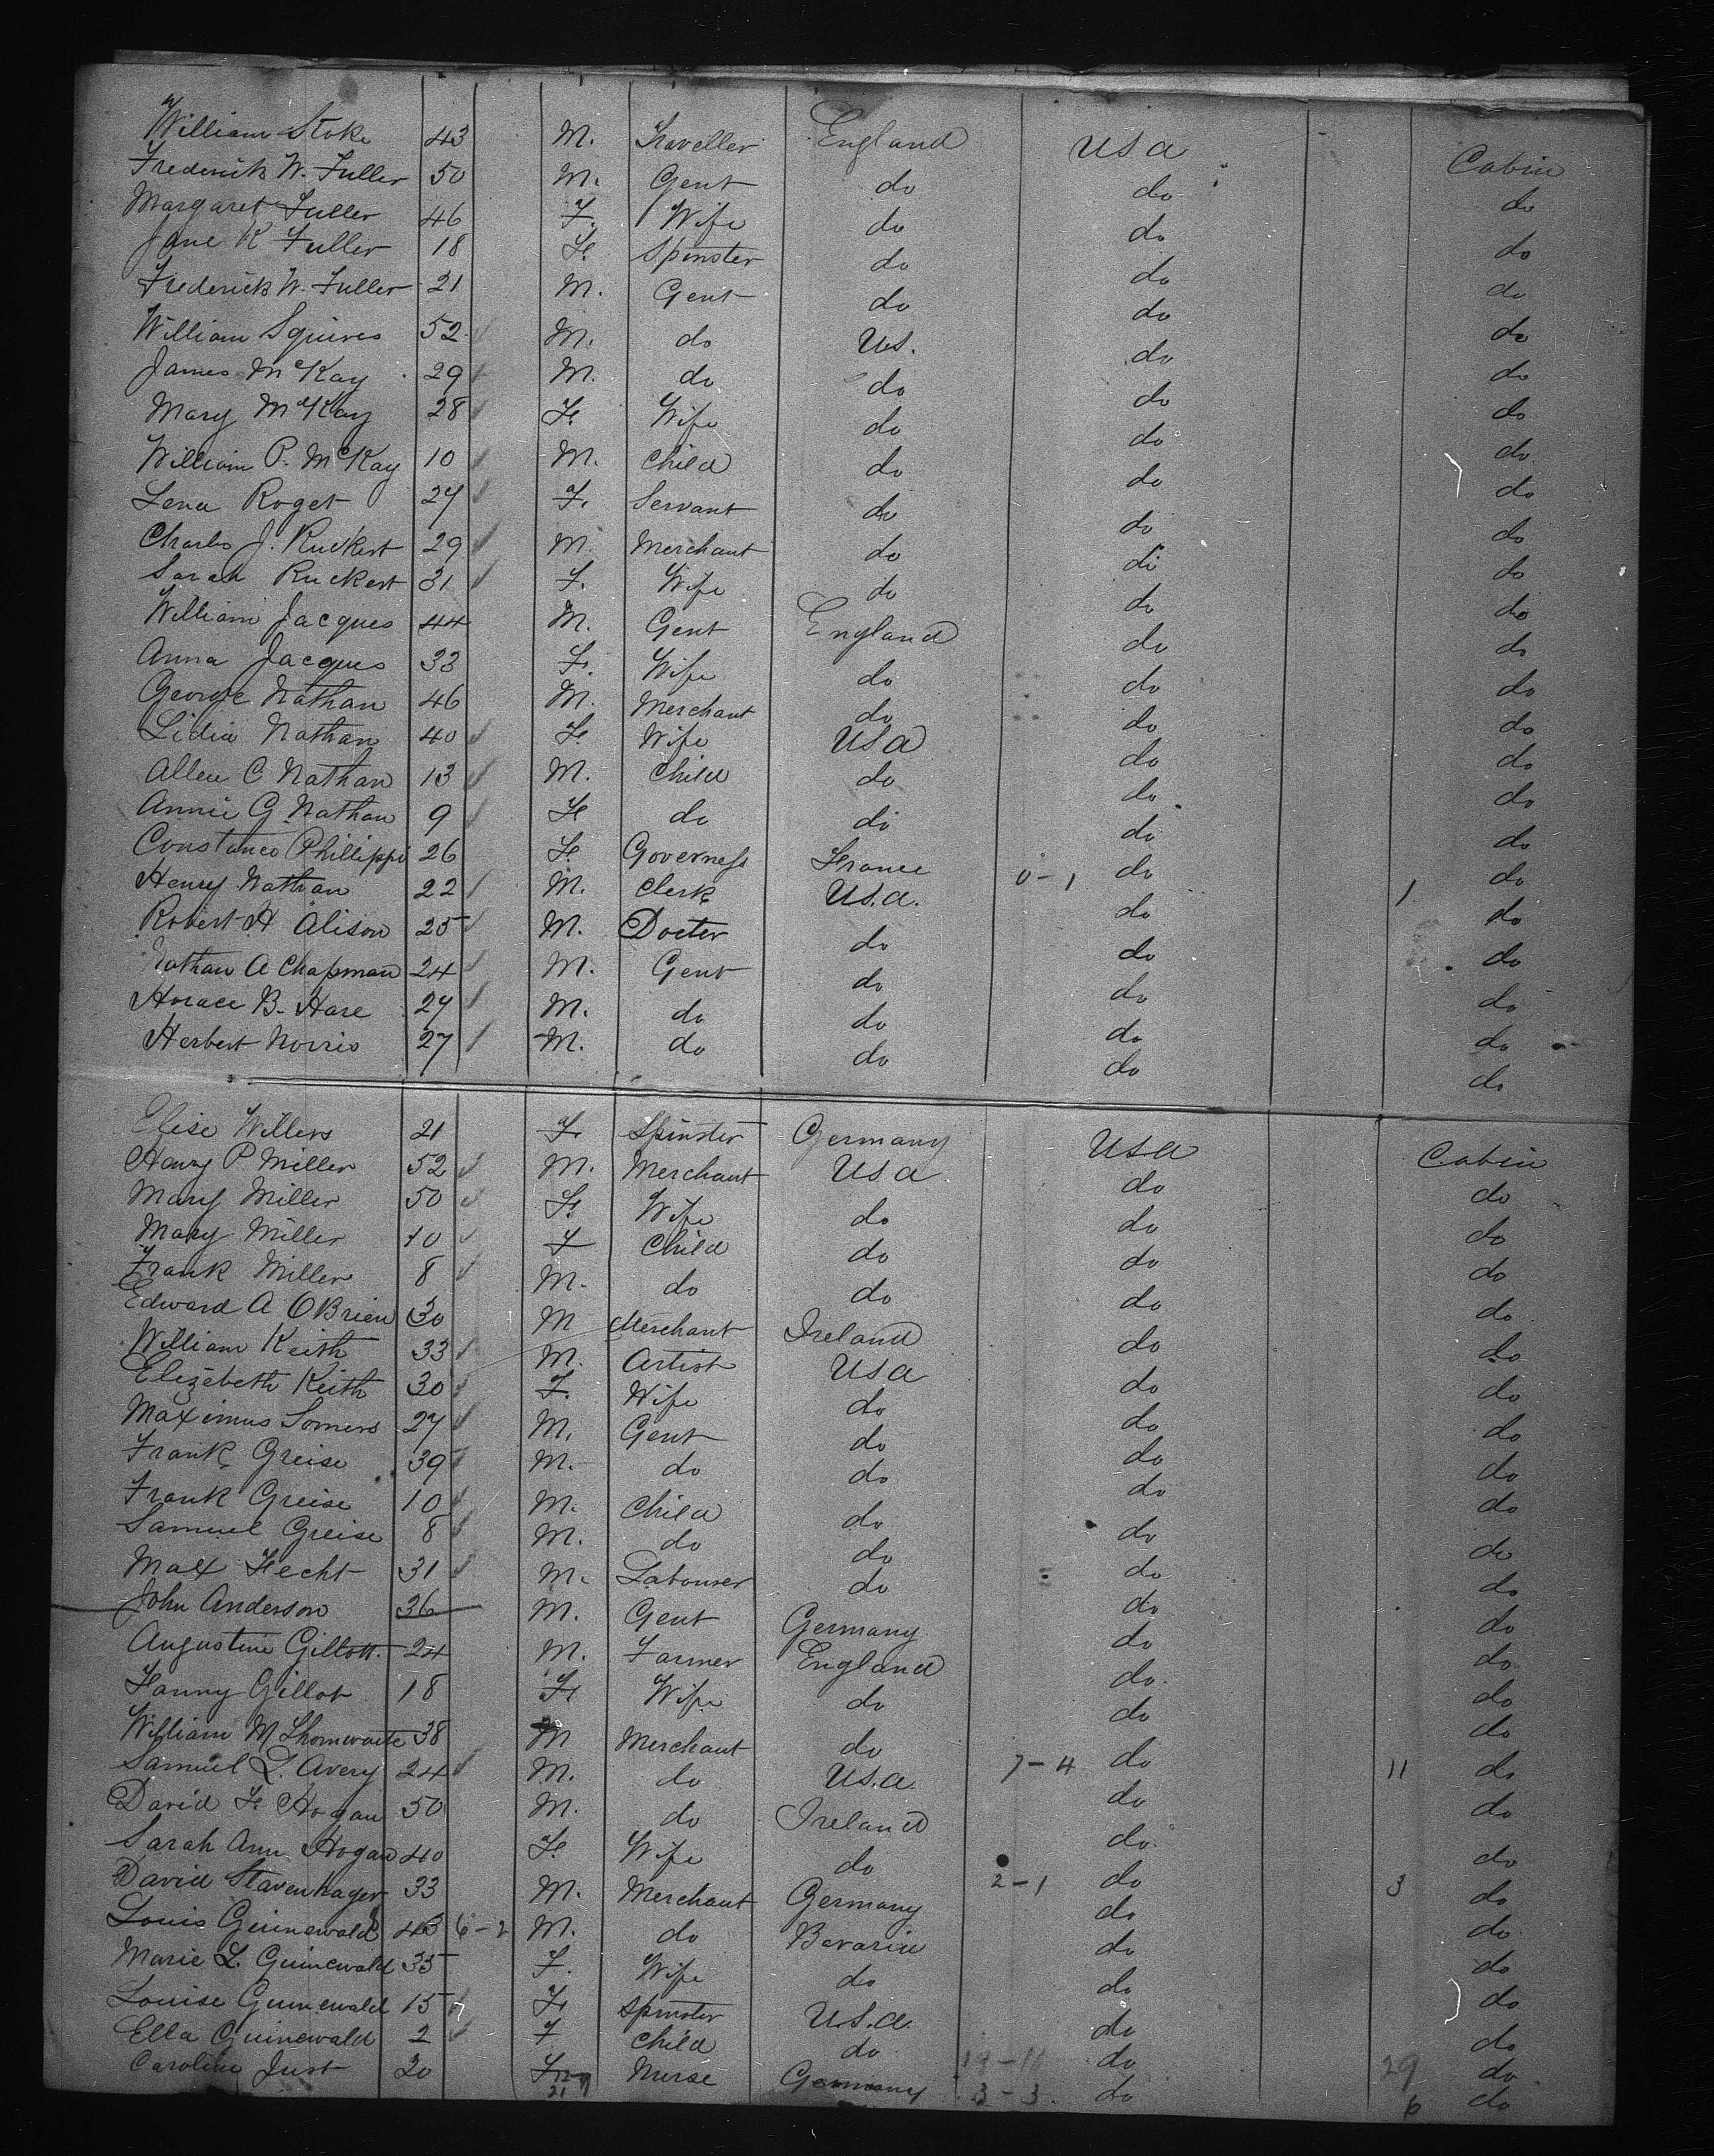 William Stoke 43 M. Traveller England USA Cabin
Frederick W. Fuller 50 M. Gent do do do
Margaret Fuller 46 F. Wife do do do
Jane K Fuller 18 F. Spinster do do do
Frederick W. Fuller 21 M. Gent do do do
William Squires 52 M. do U.S. do do
James McKay 29 M. do do do do
Mary McKay 28 F. Wife do do do
William P. McKay 10 M. Child do do do
Lena Roget 27 F. Servant do do do
Charles J. Ruckert 29 M. Merchant do do do
Sarah Ruckert 31 F. Wife do do do
William Jacques 44 M. Gent England do do
Anna Jacques 33 F. Wife do do do
George Nathan 46 M. Merchant do do do
Lidia Nathan 40 F. Wife USA do do
Allen C Nathan 13 M. Child do do do
Annie G Nathan 9 F do do do do
Constance Phillippi 26 F. Governess France 0-1 do 1 do
Henry Nathan 22 M. Clerk U.S.A. do do
Robert H Alison 25 M. Docter do do do
Nathan A Chapman 24 M. Gent do do do
Horace B. Hare 27 M. do do do do
Herbert Norris 27 M. do do do do
Elise Willers 21 F. Spinster Germany USA Cabin
Henry P Miller 52 M. Merchant USA do do
Mary Miller 50 F. Wife do do do
Mary Miller 10 F Child do do do
Frank Miller 8 M. do do do do
Edward A OBrien 30 M Merchant Ireland do do
William Keith 33 M. Artist USA do do
Elizebeth Keith 30 F. Wife do do do
Maximus Somers 27 M. Gent do do do
Frank Greise 39 M. do do do do
Frank Greise 10 M. Child do do do
Samuel Greise 8 M. do do do do
Max Hecht 31 M. Labourer do do do
John Anderson 36 M. Gent Germany do do
Augustine Gillott 24 M. Farmer England do do
Fanny Gillot 18 F Wife do do do
William M Thornwaite 38 M Merchant do 7-4 do 11 do
Samuel L. Avery 24 M. do U.S.A. do do
David F. Hogan 50 M. do Ireland do do
Sarah Ann Hogan 40 F Wife do 2-1 do 3 do
David Stavenhager 33 M. Merchant Germany do do
Louis Guinewald 43 6-2 M. do Bavaria do do
Marie L. Guinewald 35 F. Wife do do do
Louise Guinewald 15 F Spinster U.S.A. do do
Ella Guinewald 2 F Child do 19-10 do 29 do
Caroline Just 30 F Nurse Germany 3-3 do 6 do